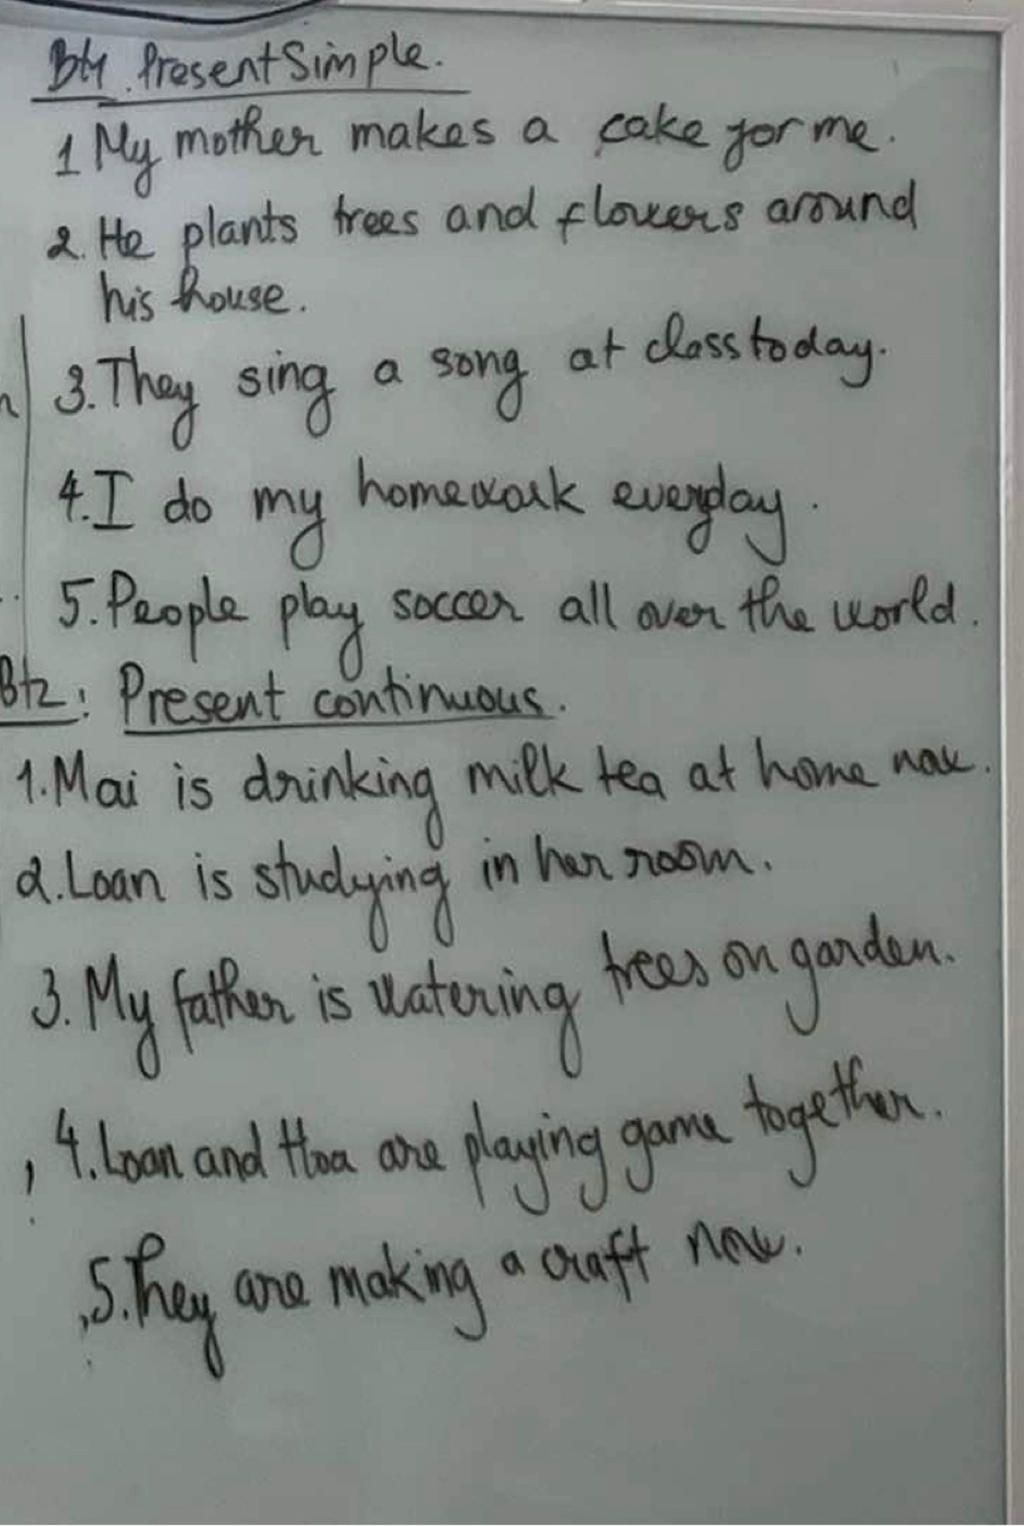 Bt1. Present Simple.
1 My mother makes a cake for me.
2. He plants trees and flowers around
his house.
3. They sing a song at class today.
4. I do my homework everyday.
5. People play soccer all over the world.
Bt2: Present continuous.
1. Mai is drinking milk tea at home now.
2. Loan is studying in her room.
3. My father is watering trees on garden.
4. Loan and Hoa are playing game together.
5. They are making a craft now.